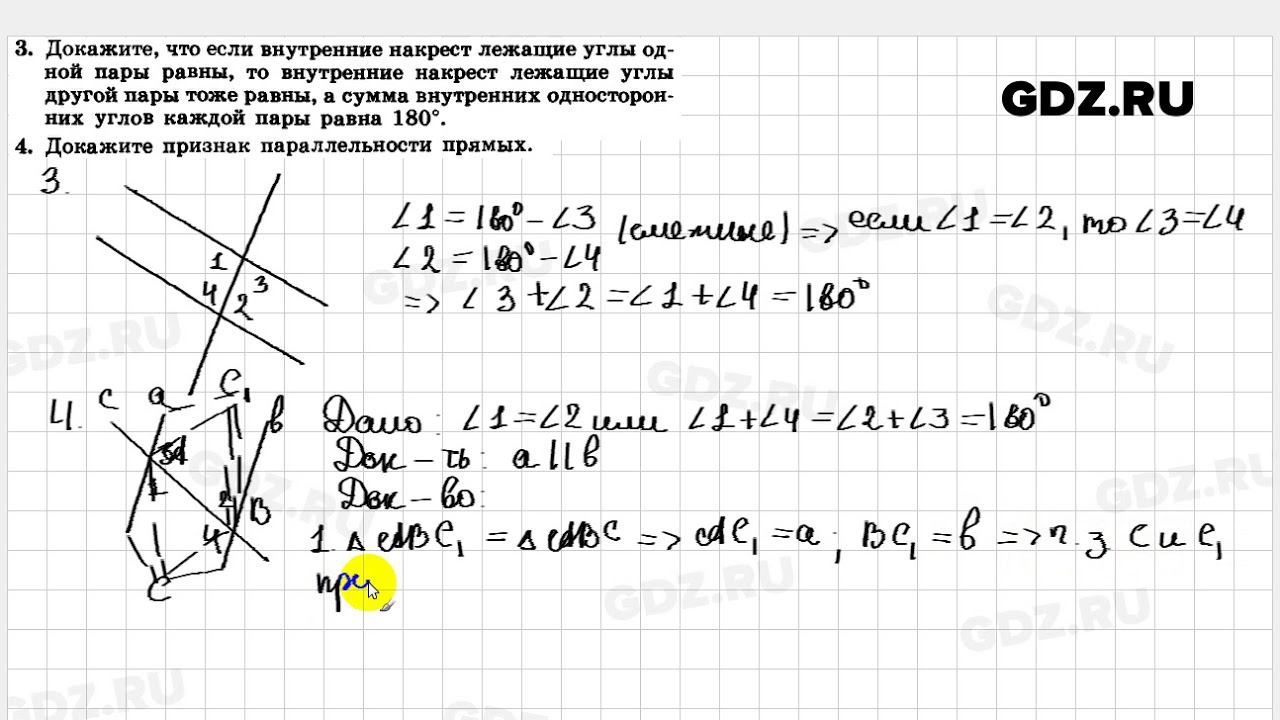 3. Докажите, что если внутренние накрест лежащие углы од-
ной пары равны, то внутренние накрест лежащие углы
другой пары тоже равны, а сумма внутренних односторон-
них углов каждой пары равна 180°.
4. Докажите признак параллельности прямых.
GDZ.RU
3.
∠1 = 180° - ∠3
∠2 = 180° - ∠4
(смежные) => если ∠1 = ∠2, то ∠3 = ∠4
=> ∠3 + ∠2 = ∠1 + ∠4 = 180°
1
2
3
4
4.
c a C₁ в
2 B
4
C
Дано: ∠1 = ∠2 или ∠1 + ∠4 = ∠2 + ∠3 = 180°
Док-ть: a || в
Док-во:
1. △ABC₁ = △ABC => AC₁ = a; BC₁ = в => ч.з C и C₁